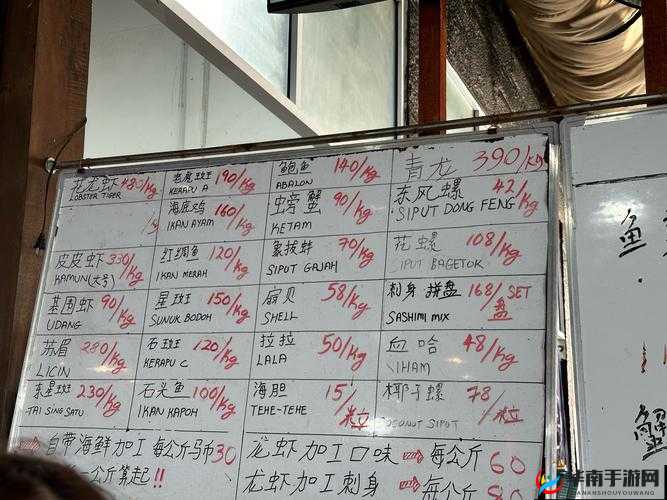 花龙虾 480/kg
LOBSTER TIGER
老虎斑 190/kg
KERAPU A
鲍鱼 140/kg
ABALON
青龙 390/kg
海底鸡 160/kg
IKAN AYAM
虫旁蟹 90/kg
KETAM
东风螺 42/kg
SIPUT DONG FENG
皮皮虾 330/kg
KAMUN(大号)
红绸鱼 120/kg
IKAN MERAH
象拔蚌 70/kg
SIPUT GAJAH
花螺 108/kg
SIPUT BAGETOK
基围虾 90/kg
UDANG
星斑 150/kg
SUNUK BODOH
扇贝 58/kg
SHELL
刺身拼盘 168/SET盘
SASHIMI MIX
苏眉 280/kg
LICIN
石斑 120/kg
KERAPU C
拉拉 50/kg
LALA
血哈 48/kg
东星斑 230/kg
TAI SING SATU
石头鱼 100/kg
IKAN KAPOH
海胆 15/粒
TEHE-TEHE
椰子螺 78/粒
SIPUT
自带海鲜加工每公斤马币30
一公斤算起!!
龙虾加工口味⇨每公斤60
龙虾加工刺身⇨每公斤80
鱼
蟹
华南手游网
HUANANSHOUYOUWANG